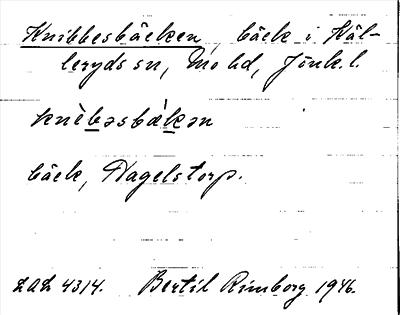 Knibbesbäcken, bäck i Häl-
leryds sn, Mo hd, Jönk. l.
knèb̲əsbæ̀k̲ən
bäck, Hagelstorp.
LAL 4314. Bertil Rimborg 1946.